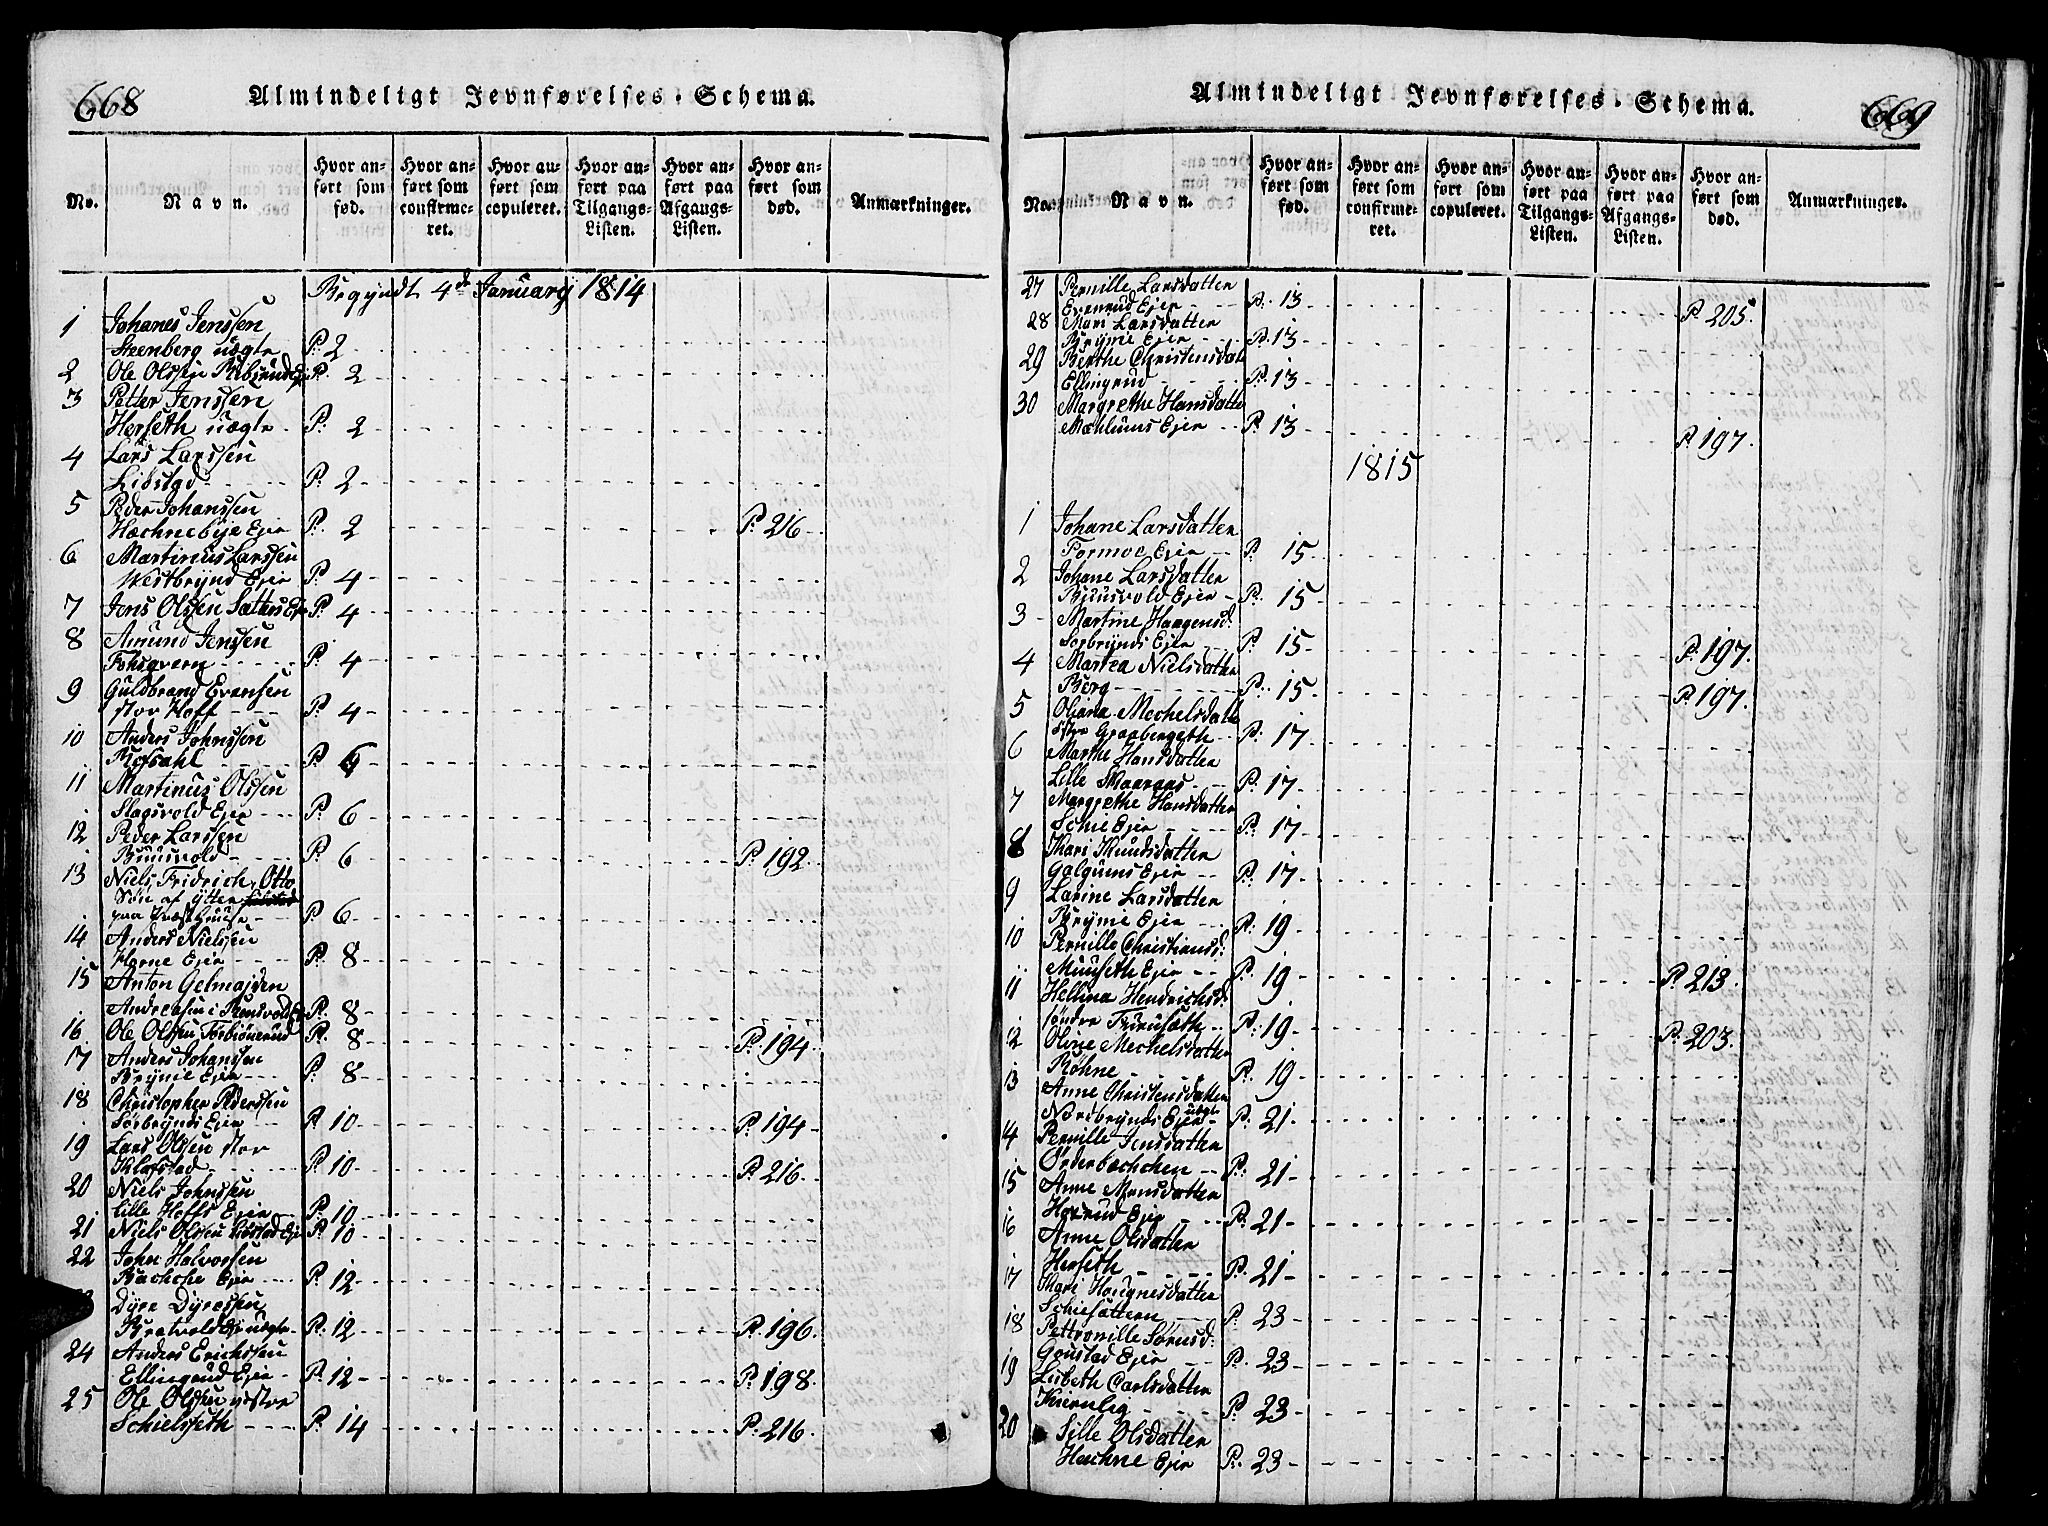 668
Almindeligt Jevnførelses-Schema.
No.
Navn.
Hvor anført som fød.
Hvor anført som confirmeret.
Hvor anført som copuleret.
Hvor anført paa Tilgangs-Listen.
Hvor anført paa Afgangs-Listen.
Hvor anført som død.
Anmærkninger.
Begyndt 4de Januarij 1814
1 Johanes Jenssen
Steenberg uægte P. 2
2 Ole Olssen P. 2
3 Petter Jenssen
Herseth uægte P. 2
4 Lars Larssen
Liøstad P. 2
5 Peder Johanssen
Hæchnebye Ejer P. 2 P. 216
6 Martinius Larssen
Westbrynd Ejer P. 4
7 Jens Olssen Sætters Ejer P. 4
8 Amund Jenssen
P. 4
9 Guldbrand Evensen
stor Hoff P. 4
10 Anders Johnssen
P. 6
11 Martinus Olssen
Slagsvold Ejer P. 6
12 Peder Larssen
P. 6 P. 192
13 Niels Fridrich Otto
Søn af Ytter
paa P. 6
14 Anders Nielssen
Horne Ejer P. 8
15 Anton
P. 8
16 Ole Olssen P. 8 P. 194
17 Anders Johanssen
Brynie Ejer P. 8
18 Christopher Pederssen
Sørbrynds Ejer P. 10 P. 194
19 Lars Olssen stor
Klafstad P. 10 P. 216
20 Niels Johnssen
lille Hoffs Ejer P. 10
21 Niels Olssen P. 10
22 John Halvorssen
Bachche Ejer P. 12
Dyre Dyressen
uægte P. 12 P. 196
24 Anders Erichssen
Ellingrud Ejer P. 12 P. 198
25 Ole Olssen
Schielseth P. 14 P. 216
669
Almindeligt Jevnførelses-Schema.
No.
Navn.
Hvor anført som fød.
Hvor anført som confirmeret.
Hvor anført som copuleret.
Hvor anført paa Tilgangs-Listen.
Hvor anført paa Afgangs-Listen.
Hvor anført som død.
Anmærkninger.
27 Pernille Larsdatter
Evenrud Ejer P. 13 P. 205
28 Mari Larsdatter
Brynie Ejer P. 13
29 Berthe Christensdatter
Ellingrud P. 13
30 Margrethe Hansdatter
Mæhlums Ejer P. 13 P. 197
1815
1 Johane Larsdatter
Formoe Ejer P. 15
2 Johane Larsdatter
Ejer P. 15
3 Martine Haagensd:
Sørbrynds Ejer P. 15 P. 197
4 Martea Nielsdatter
Berg P. 15 P. 197
5 Oliana Mechelsdatter
P. 17
6 Marthe Hansdatter
Lille P. 17
7 Margrethe Hansdatter
Schie Ejer P. 17
8 Kari Knudsdatter
Galgums Ejer P. 17
9 Larine Larsdatter
Brynie Ejer P. 19
10 Pernille Christiansd:
Ejer P. 19 P. 213
11 Hellina Hendrichsd:
søndre P. 19 P. 203
12 Olive Mechelsdatter
Røhne P. 19
13 Anne Christensdatter
Nordbrynds Ejer uægte P. 21
14 Pernille Jensdatter
P. 21
15 Anne Monsdatter
Ejer P. 21
16 Anne Olsdatter
Herseth P. 21
17 Kari
Schiesættern P. 23
18 Pettronille
Ejer P. 23
19 Lisbeth Carlsdatter
P. 23
20 Sille Olsdatter
Hæchne Ejer P. 23